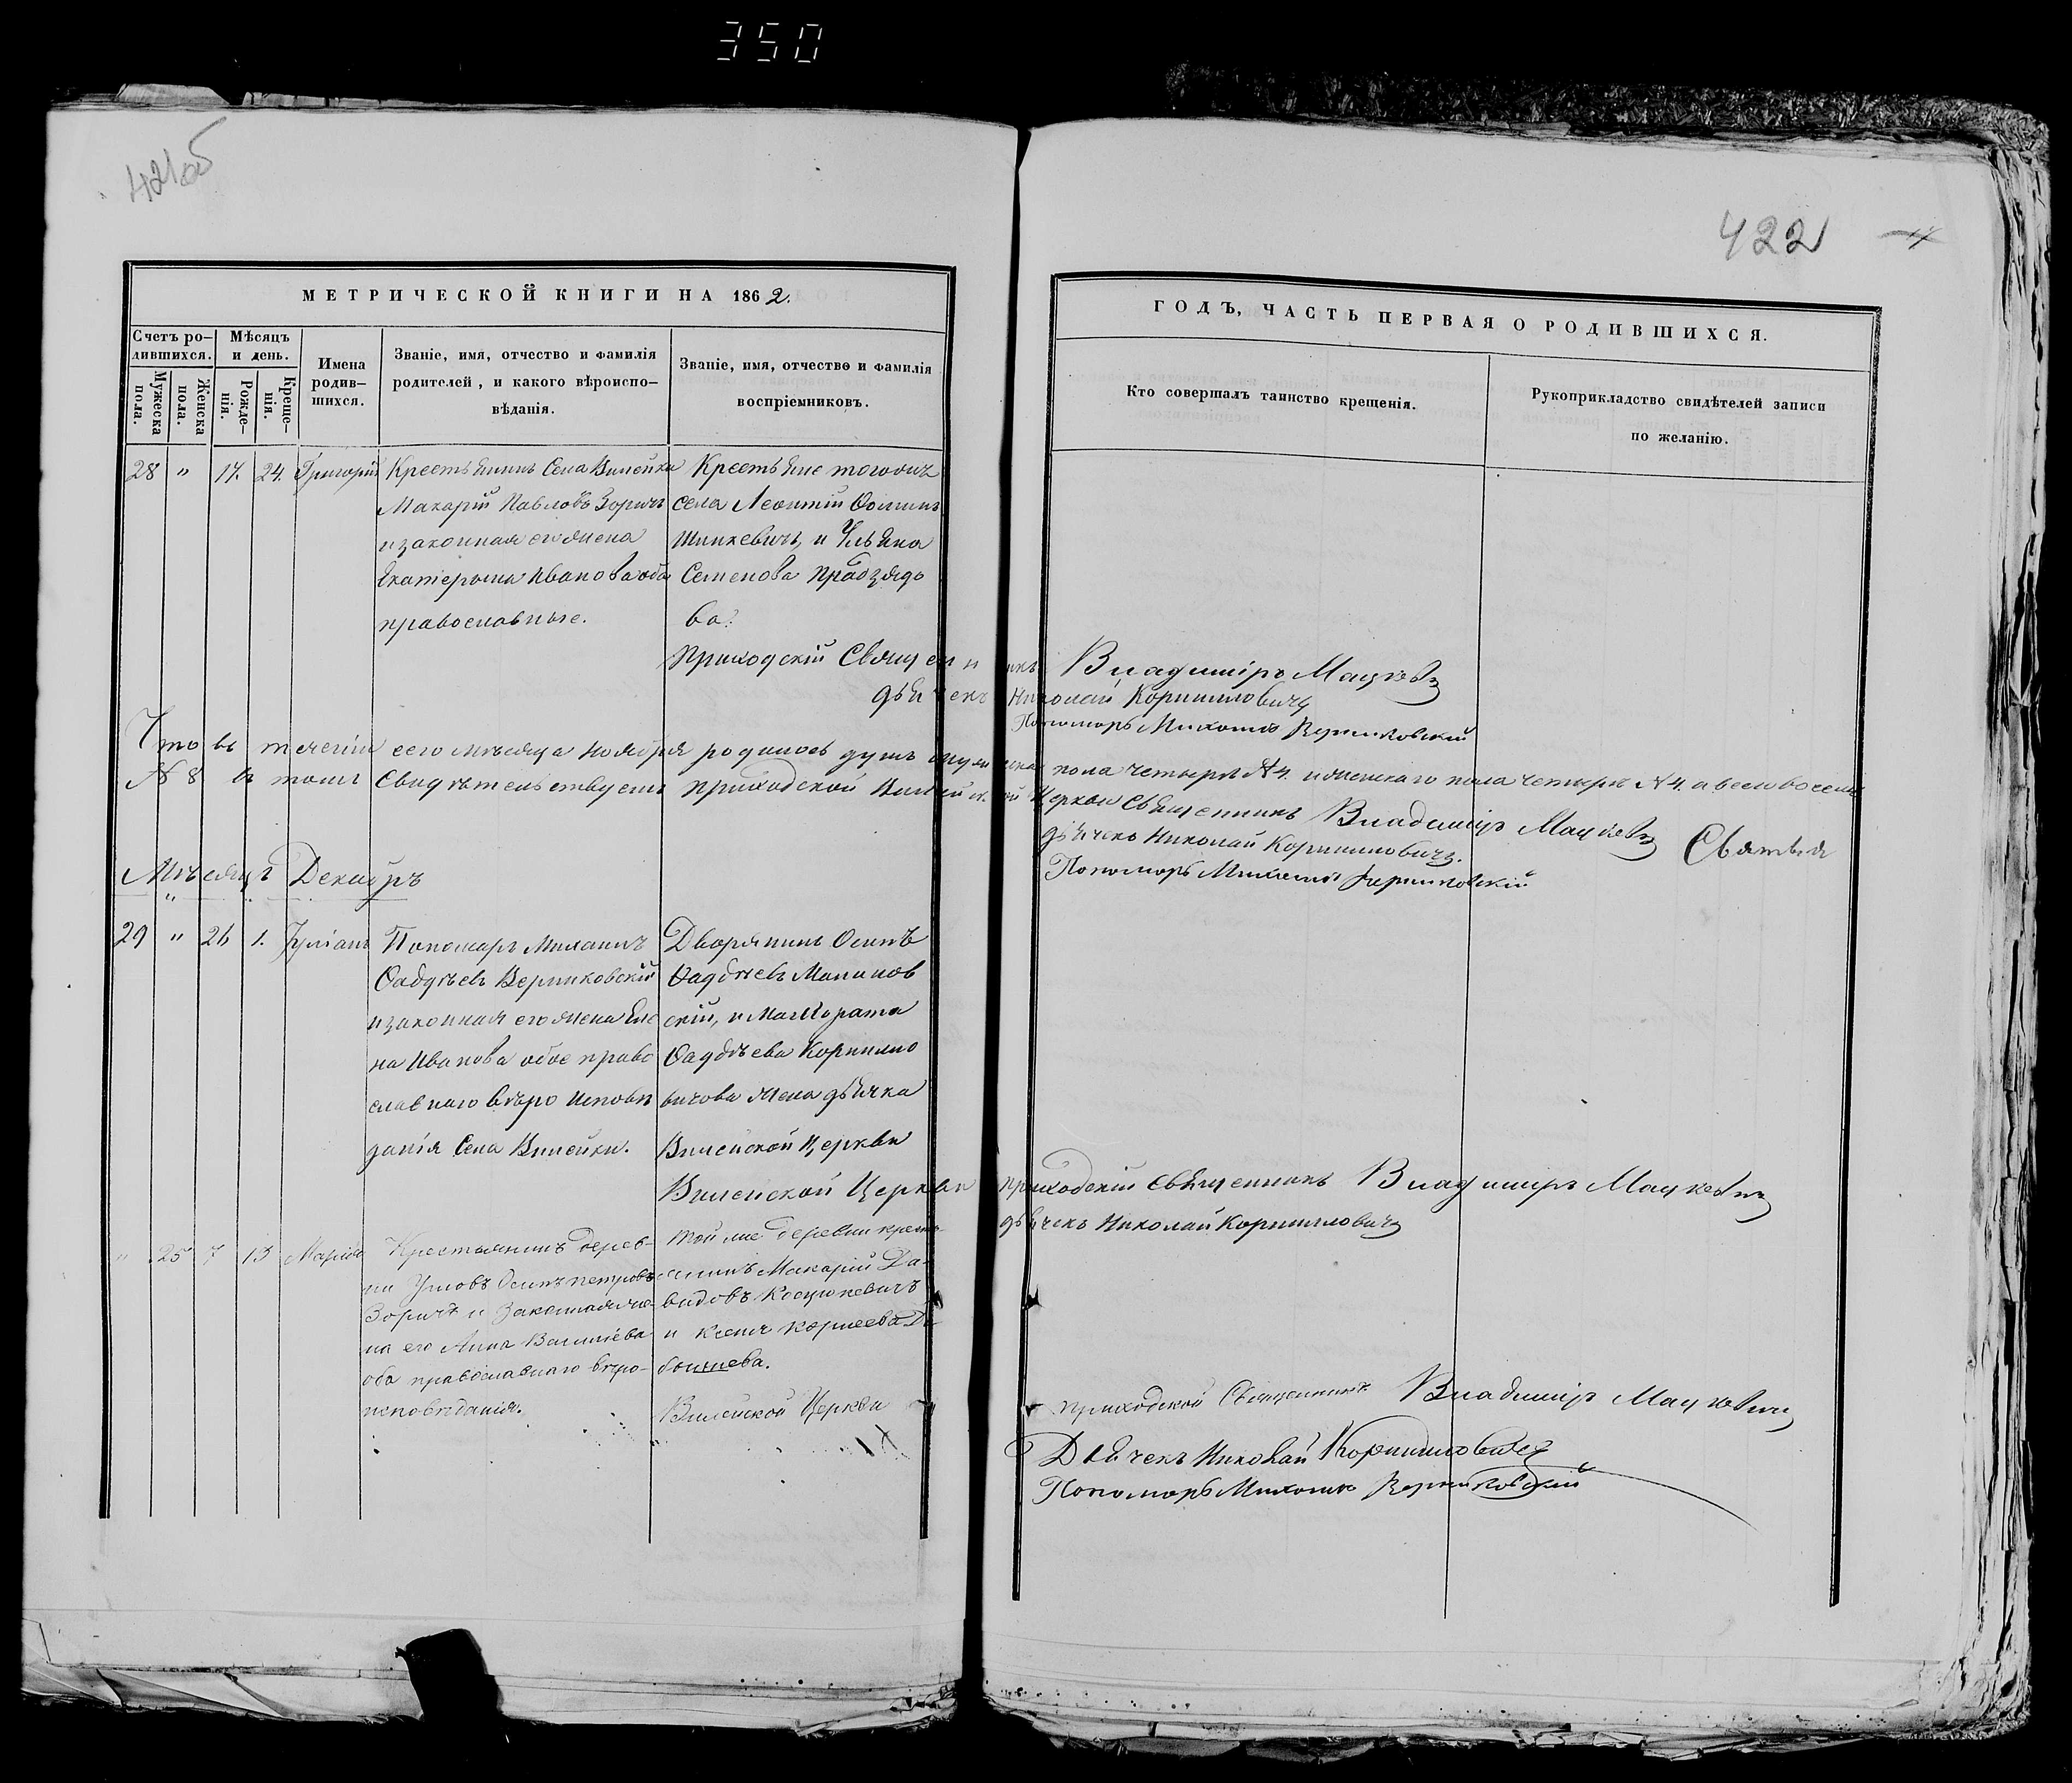 350
421об
422
МЕТРИЧЕСКОЙ КНИГИ НА 1862.
ГОДЪ, ЧАСТЬ ПЕРВАЯ О РОДИВШИХСЯ.
Счетъ ро-
дившихся.
Мужеска
пола.
Женска
пола.
Мѣсяцъ
и день.
Рожде-
нія.
Креще-
нія.
Имена
родив-
шихся.
Званіе, имя, отчество и фамилія
родителей, и какого вѣроиспо-
вѣданія.
Званіе, имя, отчество и фамилія
воспріемниковъ.
Кто совершалъ таинство крещенія.
Рукоприкладство свидѣтелей записи
по желанію.
28 " 17. 24. Григорій
Крестьянинъ Села Вилейка
Макарій Павловъ Зоричъ
и законная его жена
Екатерина Иванова оба
православные.
Крестьяне тогожъ
села Леонтій Фоминъ
Шинкевичъ, и Ульяна
Семенова Прадзядо
ва.
Приходскій Священникъ Владиміръ Мацкевъ
дьячекъ Николай Корниловичъ
Пономаръ Михаилъ Верниковскій
Что въ теченіи сего мѣсяца Ноября родилось душъ мужеска пола четыре N 4. и женскаго пола четыре N 4. а всего восемь
N 8 въ томъ Свидѣтельствуемъ Приходской Вилейской Церкви Священникъ Владиміръ Мацкевъ
дьячекъ Николай Корниловичъ.
Пономаръ Михаилъ Верниковскій
Мѣсяцъ Декабръ
29 " 26 1. Іуліанъ
Пономаръ Михаилъ
Фаддѣевъ Верниковскій
и законная его жена Еле
на Иванова обое право
славнаго вѣро Исповѣ
данія Села Вилейки.
Дворянинъ Осипъ
Фаддѣевъ Малинов
скій, и
Фаддѣева Корнило
вичова жена дьячка
Вилейской Церкви
Вилейской Церкви Приходскій Священникъ Владиміръ Мацкевичъ
дьячекъ Николай Корниловичъ
" 25 7 13 Марія
Крестьянинъ дерев-
ни Осипъ Петровъ
Зоричъ и Законная же-
на его Анна Василіева
оба православнаго вѣро-
исповѣданія.
Той же деревни кресть-
янинъ Макарій Да-
видовъ Косцюкевичъ
и Корнеева
Вилейской Церкви
приходской Священникъ Владиміръ Мацкевичъ
Дьячекъ Николай Корниловичъ
Пономаръ Михаилъ Верниковскій